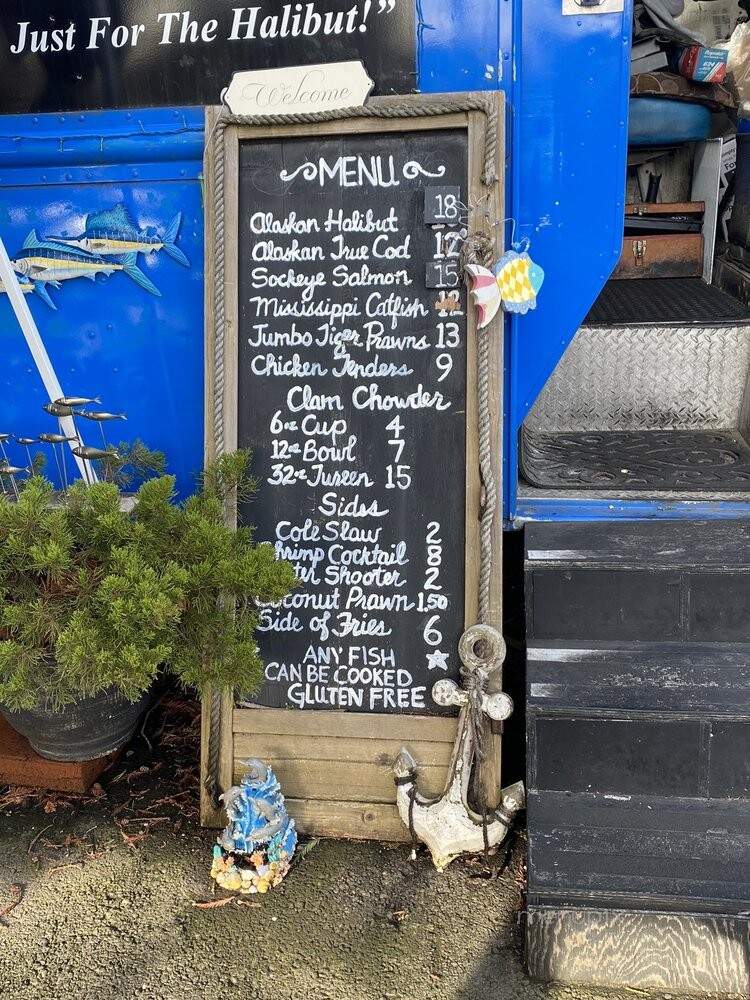 Just For The Halibut!”
Welcome
MENU
Alaskan Halibut 18
Alaskan True Cod 12
Sockeye Salmon 15
Mississippi Catfish 12
Jumbo Tiger Prawns 13
&
Chicken Tenders 9
Clam Chowder
6oz Cup 4
12oz Bowl 7
32oz Tureen 15
Sides
Cole Slaw 2
hrimp Cocktail 8
ter Shooter 2
oconut Prawn 1.50
Side of Fries 6
ANY FISH
CAN BE COOKED
GLUTEN FREE